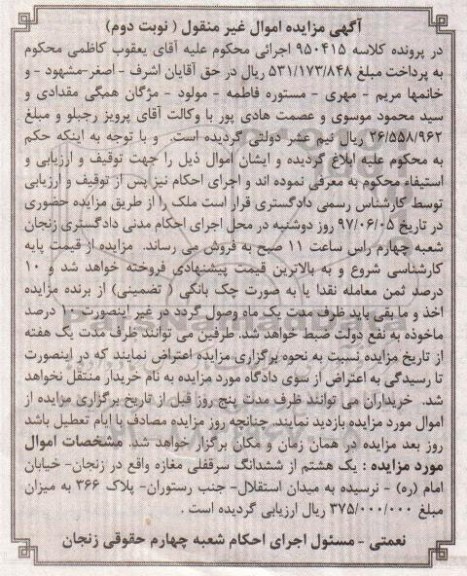 آگهی مزایده اموال غیر منقول ( نوبت دوم)
در پرونده کلاسه ۹۵۰۴۱۵ اجرائی محکوم علیه آقای یعقوب کاظمی محکوم
به پرداخت مبلغ ۵۳۱/۱۷۳/۸۴۸ ریال در حق آقایان اشرف - اصغر-مشهود - و
خانمها مریم - مهری - مستوره فاطمه - مولود - مژگان همگی مقدادی و
سید محمود موسوی و عصمت هادی پور با وکالت آقای پرویز رجبلو و مبلغ
۲۶/۵۵۸/۹۶۲ ریال نیم عشر دولتی گردیده است. و با توجه به اینکه حکم
به محکوم علیه ابلاغ گردیده و ایشان اموال ذیل را جهت توقیف و ارزیابی و
استیفاء محکوم به معرفی نموده اند و اجرای احکام نیز پس از توقیف و ارزیابی
توسط کارشناس رسمی دادگستری قرار است ملک را از طریق مزایده حضوری
در تاریخ ۹۷/۰۶/۰۵ روز دوشنبه در محل اجرای احکام مدنی دادگستری زنجان
شعبه چهارم راس ساعت ۱۱ صبح به فروش می رساند. مزایده از قیمت پایه
کارشناسی شروع و به بالاترین قیمت پیشنهادی فروخته خواهد شد و ۱۰
درصد ثمن معامله نقدا یا به صورت چک بانکی ( تضمینی) از برنده مزایده
اخذ و ما بقی باید ظرف مدت یک ماه وصول گردد در غیر اینصورت ۱۰ درصد
ماخوذه به نفع دولت ضبط خواهد شد. طرفین می توانند ظرف مدت یک هفته
از تاریخ مزایده نسبت به نحوه برگزاری مزایده اعتراض نمایند که در اینصورت
تا رسیدگی به اعتراض از سوی دادگاه مورد مزایده به نام خریدار منتقل نخواهد
شد. خریداران می توانند ظرف مدت پنج روز قبل از تاریخ برگزاری مزایده از
اموال مورد مزایده بازدید نمایند. چنانچه روز مزایده مصادف با ایام تعطیل باشد
روز بعد مزایده در همان زمان و مکان برگزار خواهد شد. مشخصات اموال
مورد مزایده : یک هشتم از ششدانگ سرقفلی مغازه واقع در زنجان- خیابان
امام (ره) - نرسیده به میدان استقلال- جنب رستوران- پلاک ۳۶۶ به میزان
مبلغ ۳۷۵/۰۰۰/۰۰۰ ریال ارزیابی گردیده است .
نعمتی - مسئول اجرای احکام شعبه چهارم حقوقی زنجان